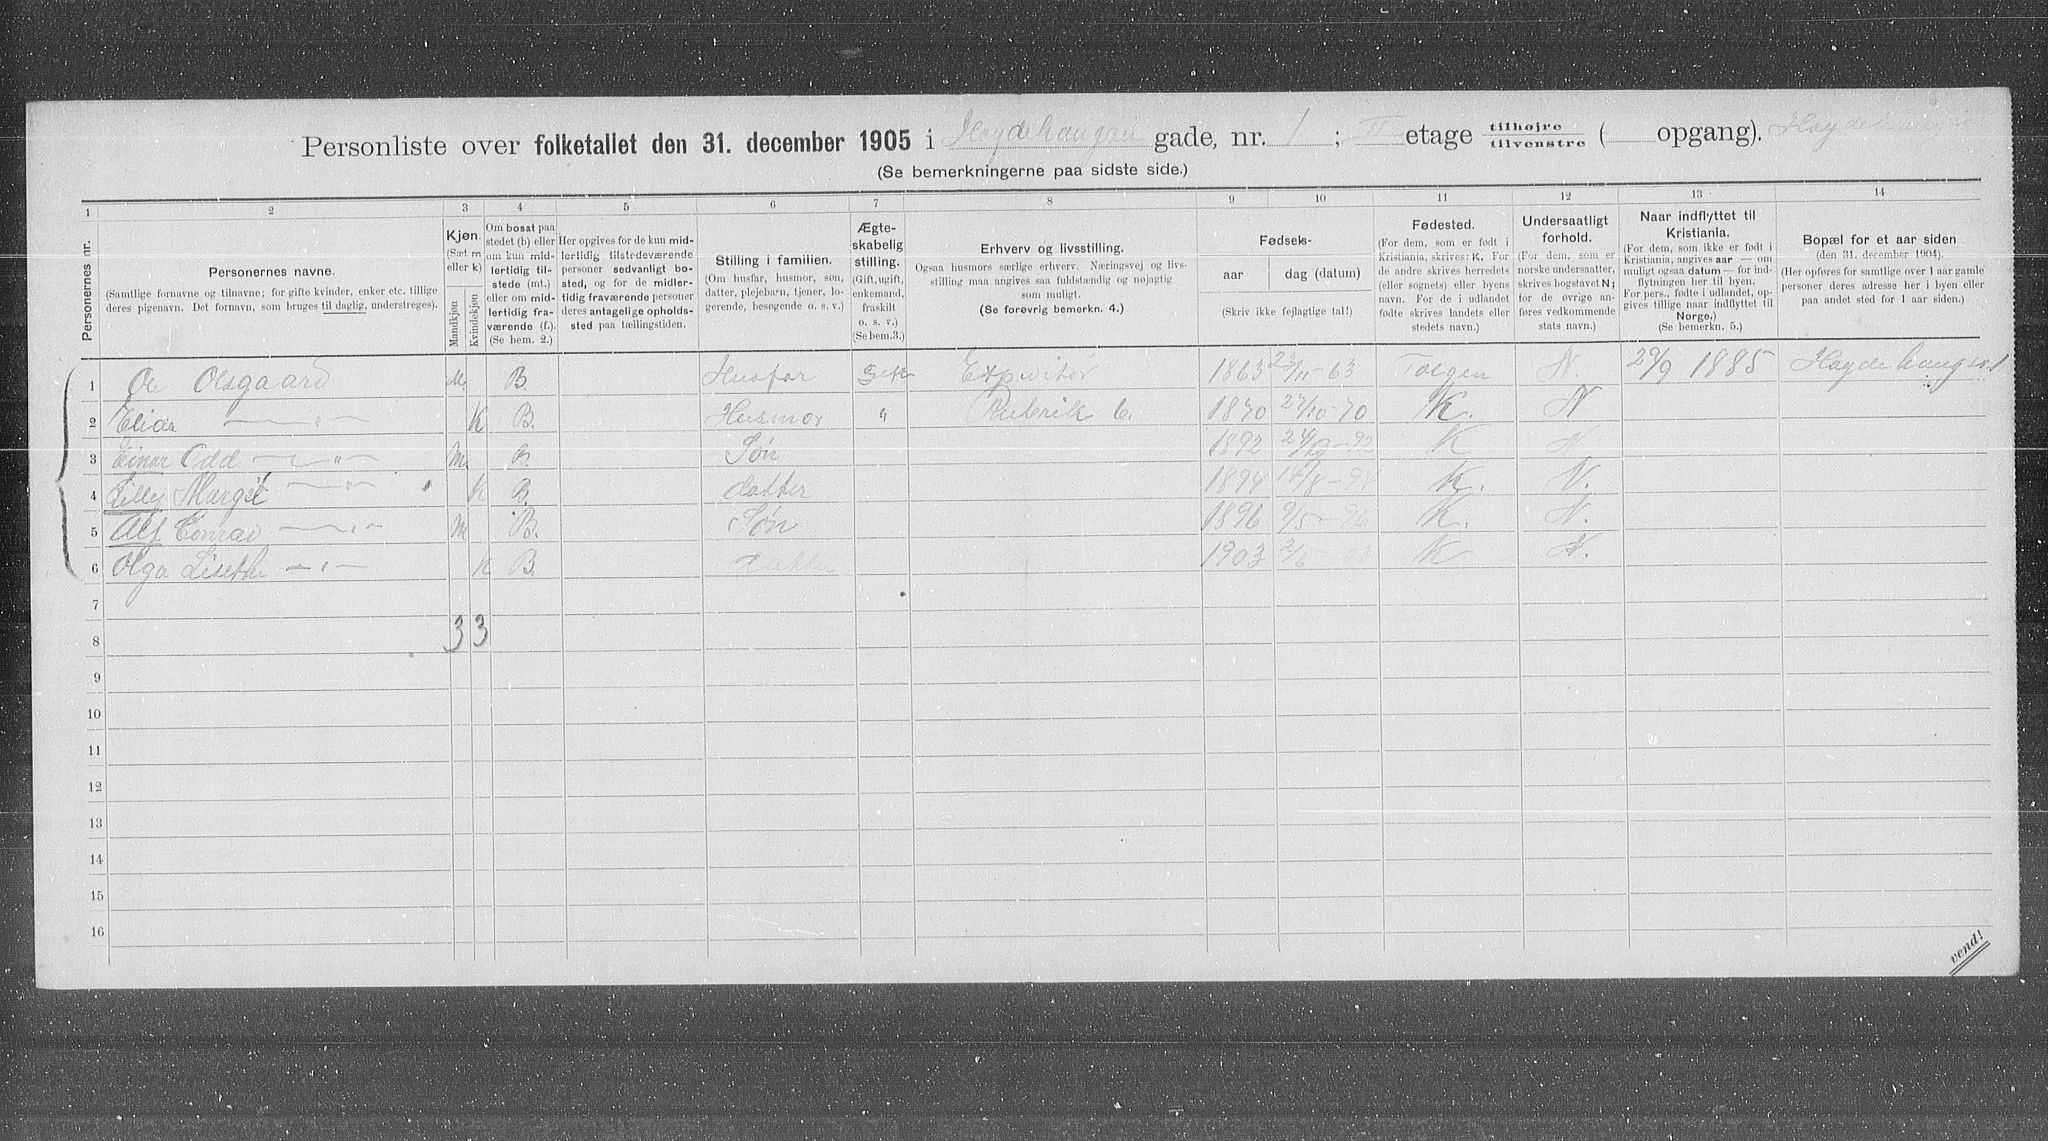 Personliste over folketallet den 31. december 1905 i Heydehaugsv gade, nr. 1 ; II etage tilhøjre tilvenstre ( opgang).
(Se bemerkningerne paa sidste side.)
1 2 3 4 5 6 7 8 9 10 11 12 13 14
Personernes nr.
Personernes navne.
(Samtlige fornavne og tilnavne; for gifte kvinder, enker etc. tillige
deres pigenavn. Det fornavn, som bruges til daglig, understreges).
Kjøn.
(Sæt m
eller k)
Mandkjøn
Kvindekjøn
Om bosat paa
stedet (b) eller
om kun mid-
lertidig til-
stede (mt.)
eller om mid-
lertidig fra-
værende (f.).
(Se bem. 2.)
Her opgives for de kun mid-
lertidig tilstedeværende
personer sedvanligt bo-
sted, og for de midler-
tidig fraværende personer
deres antagelige opholds-
sted paa tællingstiden.
Stilling i familien.
(Om husfar, husmor, søn,
datter, plejebarn, tjener, lo-
gerende, besøgende o. s. v.)
Ægte-
skabelig
stilling.
(Gift, ugift,
enkemand,
fraskilt
o. s. v.)
(Se bem.3.)
Erhverv og livsstilling.
Ogsaa husmors særlige erhverv. Næringsvej og livs-
stilling maa angives saa fuldstændig og nøjagtig
som muligt.
(Se forøvrig bemerkn. 4.)
Fødsels-
aar
dag (datum)
(Skriv ikke fejlagtige tal!)
Fødested.
(For dem, som er født i
Kristiania, skrives: K. For
de andre skrives herredets
(eller sognets) eller byens
navn. For de i udlandet
fødte skrives landets eller
stedets navn.)
Undersaatligt
forhold.
(For dem, som er
norske undersaatter,
skrives bogstavet N;
for de øvrige an-
føres vedkommende
stats navn.)
Naar indflyttet til
Kristiania.
(For dem, som ikke er født i
Kristiania, angives aar — om
muligt ogsaa datum — for ind-
flytningen her til byen.
For pers., fødte i udlandet, op-
gives tillige naar indflyttet til
Norge.)
(Se bemerkn. 5.)
Bopæl for et aar siden
(den 31. december 1904).
(Her opføres for samtlige over 1 aar gamle
personer deres adresse her i byen eller
paa andet sted for 1 aar siden.)
1 Ole Olsgaard M. B. Husfar Gift Expeditør 1863 23/11-63 Tolgen N 29/9 1885 Heydehaugsv 1
2 Elida — " — K B. Husmor " Rubrik 6. 1870 27/10-70 K. N
3 Einar Odd — " — M. B. Søn 1892 24/12-92 K N
4 Lilly Margit — " — K B. datter 1894 14/8-94 K. N.
5 Alf Conrad — " — M B. Søn 1896 9/5-96 K. N.
6 Olga Liseth — " — K B. datter 1903 2/6-03 K N.
7
8 3 3
9
10
11
12
13
14
15
16
vend!